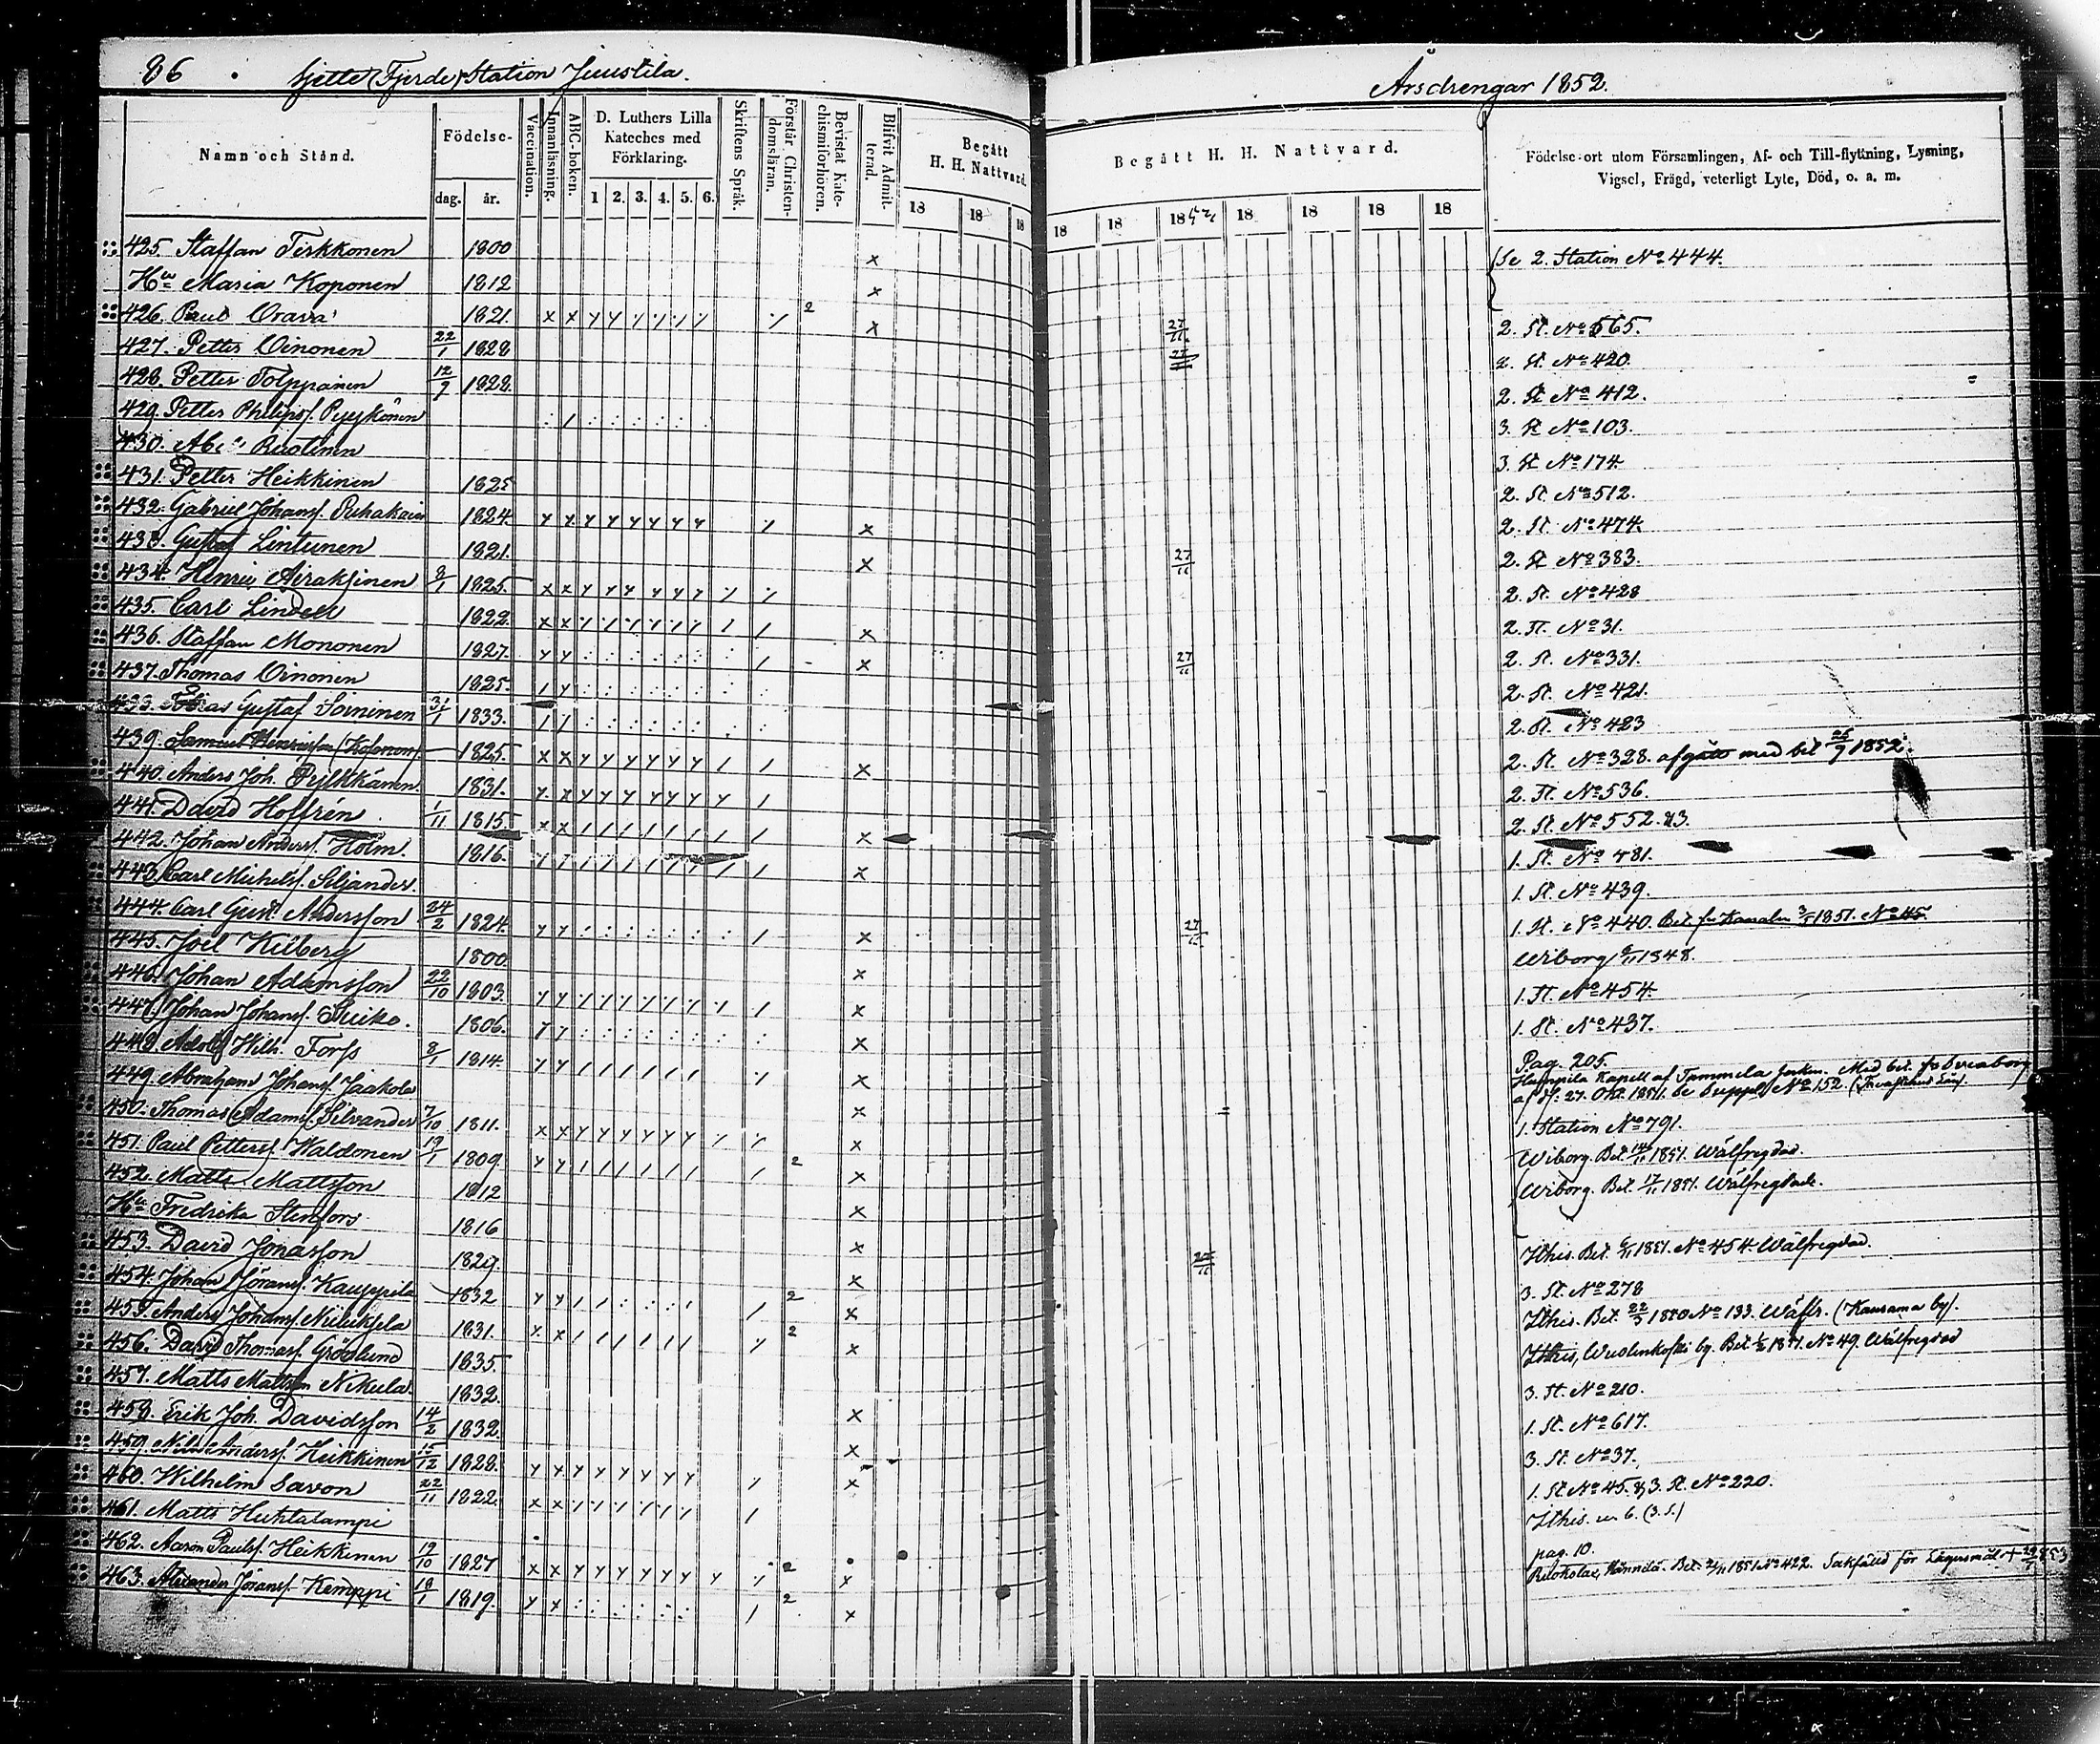 86 Sjette (Fjerde) Station Juustila.
Årsdrengar 1852.
Namn och Stånd.
Födelse-
dag. år.
Vaccination.
Innanläsning.
ABC-boken.
D. Luthers Lilla
Kateches med
Förklaring.
1 2. 3. 4. 5. 6.
Skriftens Språk.
Förstår Christen-
domsläran.
Bevistat Kate-
chismiförhören.
Blifvit Admit-
terad.
Begått
H. H. Nattvard.
18 18 18
Begått H. H. Nattvard.
18 18 1852 18 18 18 18
Födelse-ort utom Församlingen, Af- och Till-flyttning, Lysning,
Vigsel, Frägd, veterligt Lyte, Död, o. a. m.
425. Staffan Tirkkonen 1800 x Se 2. Station No 444.
Hu Maria Koponen 1812 x
426. Paul Orava 1821. 2 x 27/11. 2. St. No 565.
427. Petter Oinonen 22/1 1828 2. St. No 420.
428. Petter Tolppanen 12/9 1828. 2. St No 412.
429. Petter Philipsf. Pyyykönen 3. St No 103.
430. Ruotinen 3. St No 174
431. Petter Heikkinen 1825 2. St. No 512.
432. Gabriel Johansf. 1824. x 2. St. No 474.
433. Gustaf Lintunen 1821. x 27/11 2. St No 383.
434. Henric Airaksinen 8/1 1825. 2. St. No 428
435. Carl Lindell 1822. x 2. St. No 31.
436. Staffan Mononen 1827. x 27/11 2. St. No 331.
437. Thomas Oinonen 1825. 2. St. No 421.
438. Gustaf Soininen 31/1 1833. 2. St. No 423
439. Samuel 1825. x 2. St. No 328. afgått med bet 25/9 1852.
440. Anders Joh. Pylkkänen 1831. 2. St. No 536.
441. David Hoffrén 1/11 1815. x 2. St. No 552.
442. Johan Andersf. Holm. 1816. x 1. St. No 481.
443. Carl Michelsf. Siljander. 1. St. No 439.
444. Carl Gust. Andersson 24/2 1824. x 27/11 1. St. No 440. Bet. fr Kanalen 3/5 1851. No 45.
445. Joel Kilberg 1800. x Wiborg 1848.
446. Johan Adamsson 22/10 1803. x 1. St. No 454.
447. Johan Johansf. 1806. x 1. St. No 437.
448. Adolf Wilh. Forss 8/1 1814. x Pag. 205.
449. Abraham Johansf. Jaakola x Humpila Kapell af Tammela socken. Med bet. fr Sveaborg
af d: 27. Okt. 1851. Se Suppl. No 152.
450. Thomas Adamsf. Silvander 7/10 1811. x 1. Station No 791.
451. Paul Pettersf. Waldonen 19/1 1809. 2 x Wiborg. Bet. 1851. Wälfrejdad.
452. Matts Mattsson 1812 x Wiborg. Bet. 1851. Wälfrejdade.
Hu Fredrika Stenfors 1816 x
453. David Jonasson 1829. x Ithis. Bet. 1851. No 454. Wälfrejdad.
454. Johan Jöransf. Kauppila 1832 2 x 3. St. No 278
455. Anders Johansf. 1831. 2 x Ithis. Bet. 22/5 1850 No 133. Wälfr. (Kausama by).
456. David Thomasf. Gröölund 1835. Ithis, by. Bet. 1851. No 49. Wälfrejdad
457. Matts Mattson Nikula. 1832. x 3. St. No 210.
458. Erik Joh. Davidsson 14/2 1832. x 1. St. No 617.
459. Nils Andersf. Heikkinen 15/12 1828. x 3. St. No 37.
460. Wilhelm Savon 22/11 1822. 1. St. No 45. & 3. St. No 220.
461. Matts Huhtalampi Ithis.
462. Aaron Paulsf. Heikkinen 19/10 1827 2 x pag. 10.
463. Alexander Jöransf. Kemppi 18/1 1819. 2 x Ruokolax, Bet. 1851 No 422. Sakfälld för Lägersmål